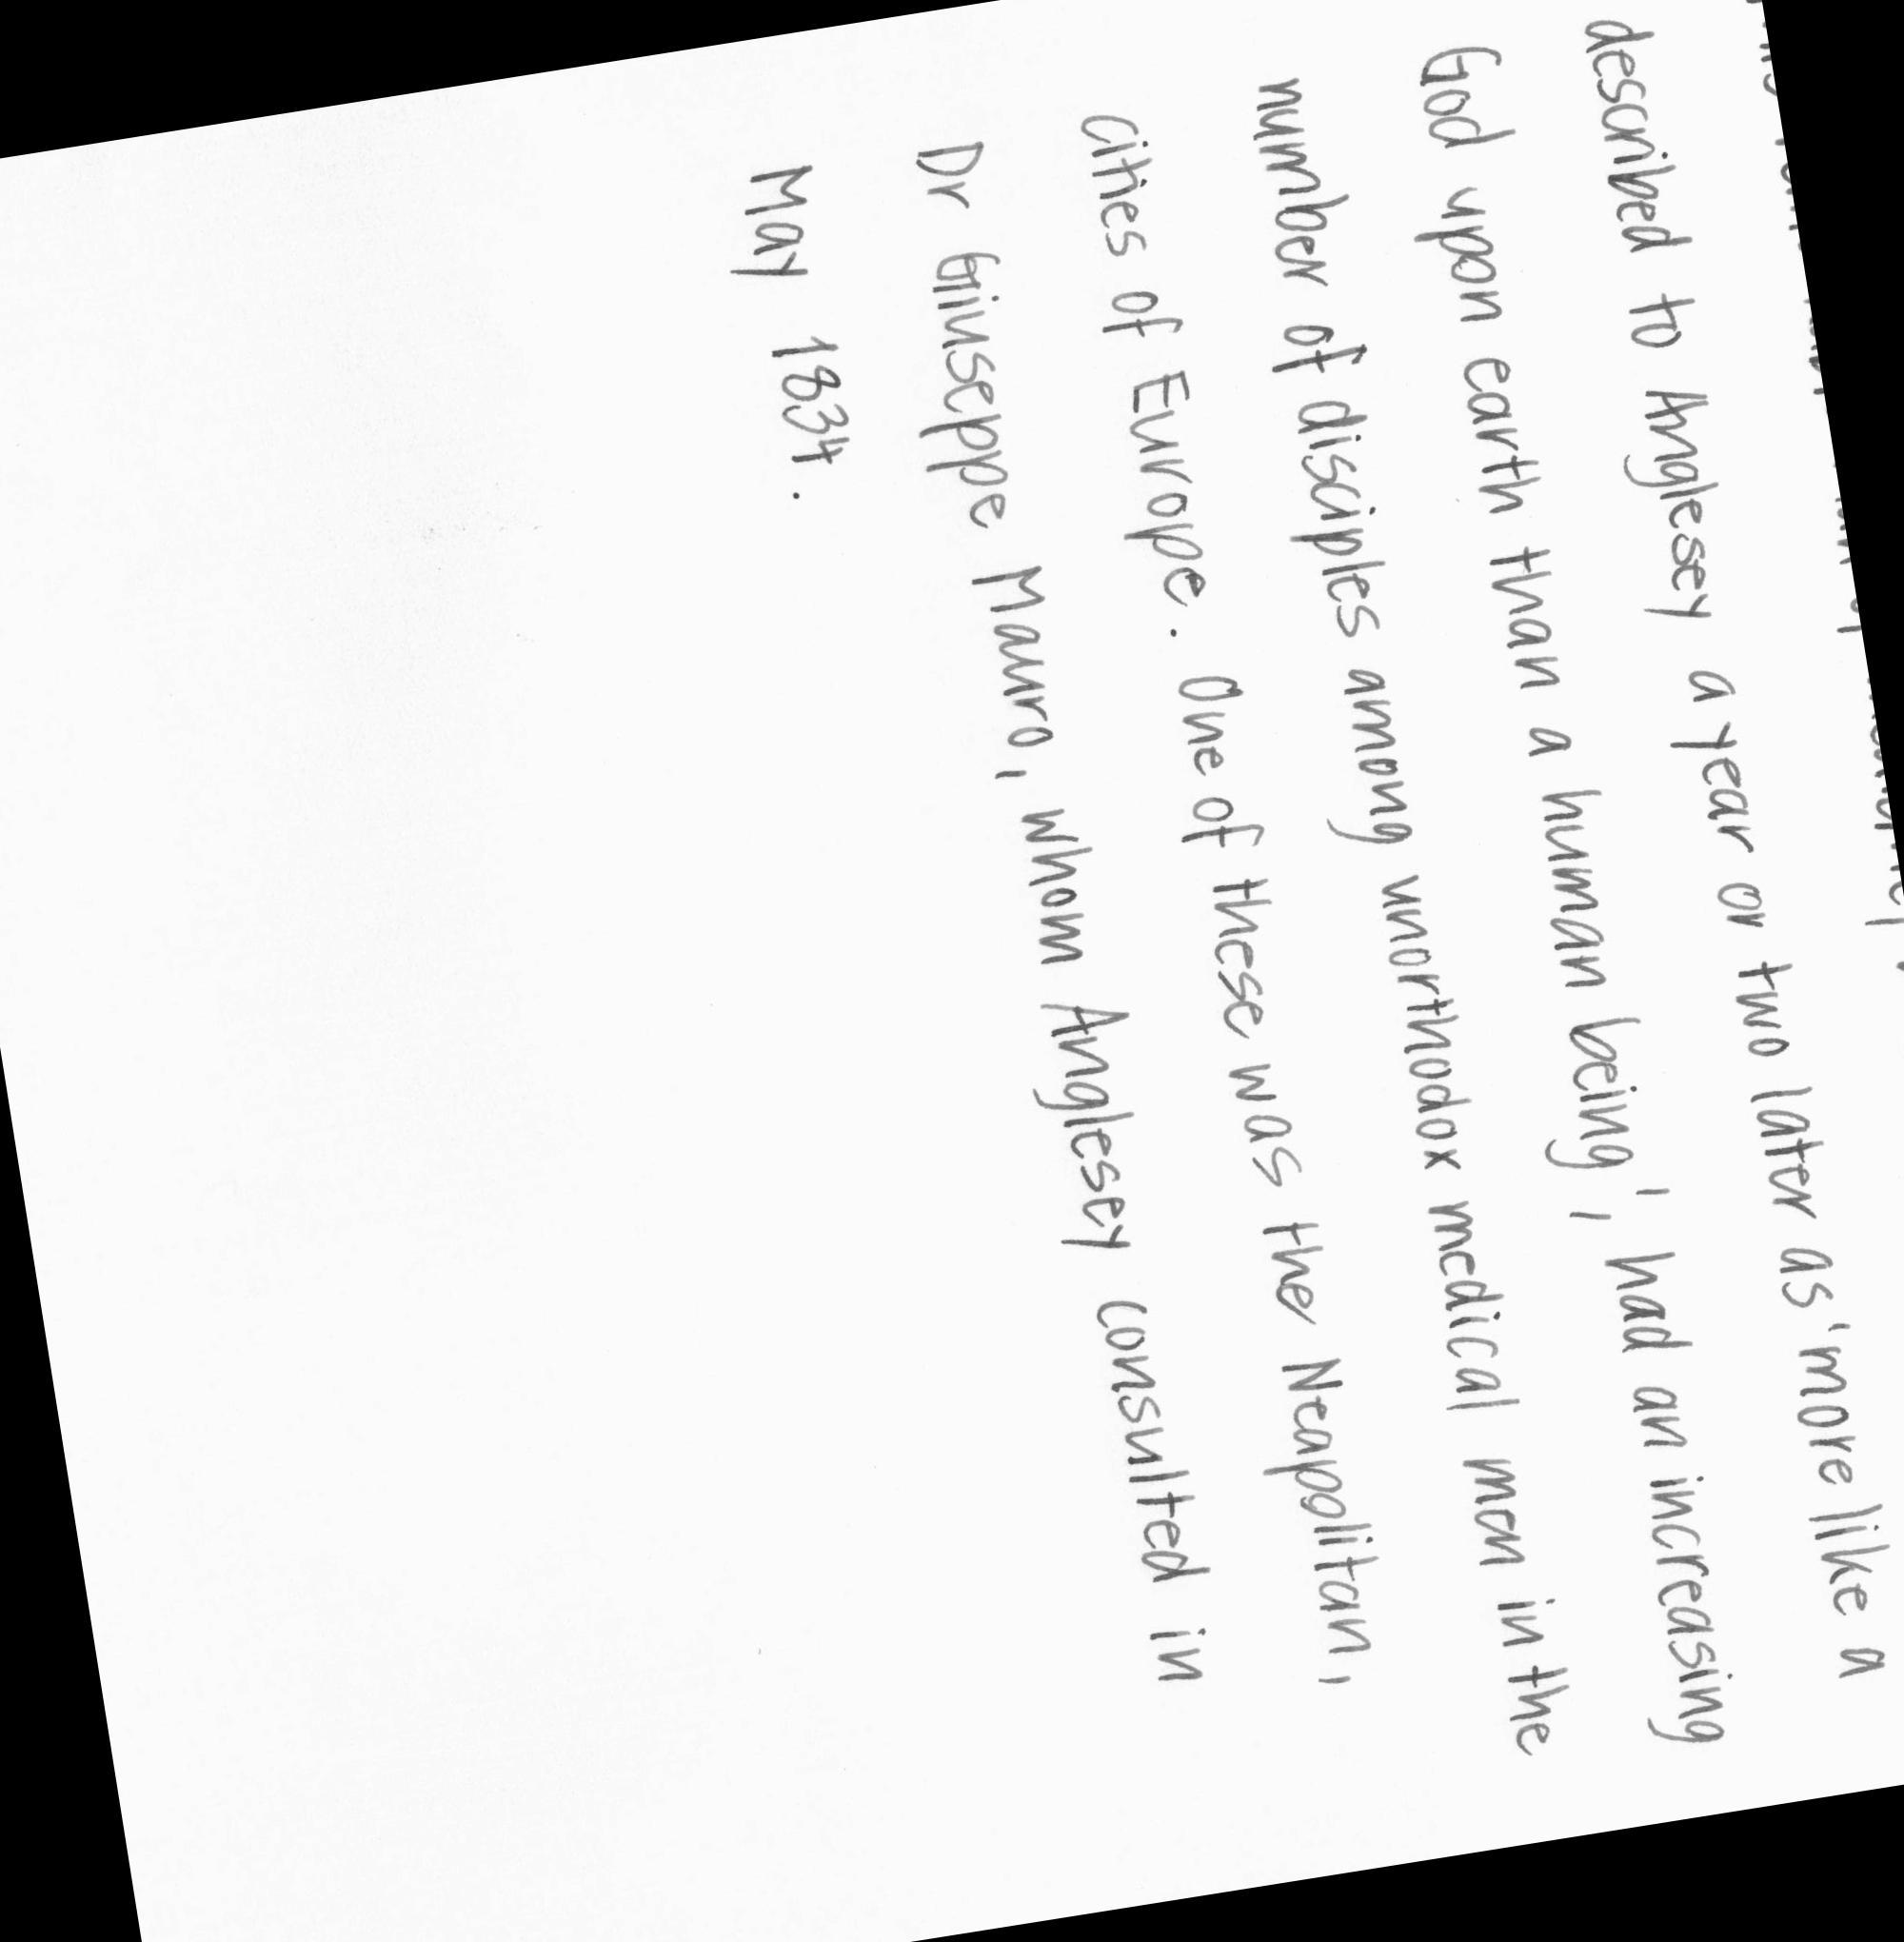 described to Anglesey a year or two later as 'more like a
God upon earth than a human being', had an increasing
number of disciples among unorthodox medical men in the
cities of Europe. One of these was the Neapolitan,
Dr Giuseppe Mauro, whom Anglesey consulted in
May 1834.